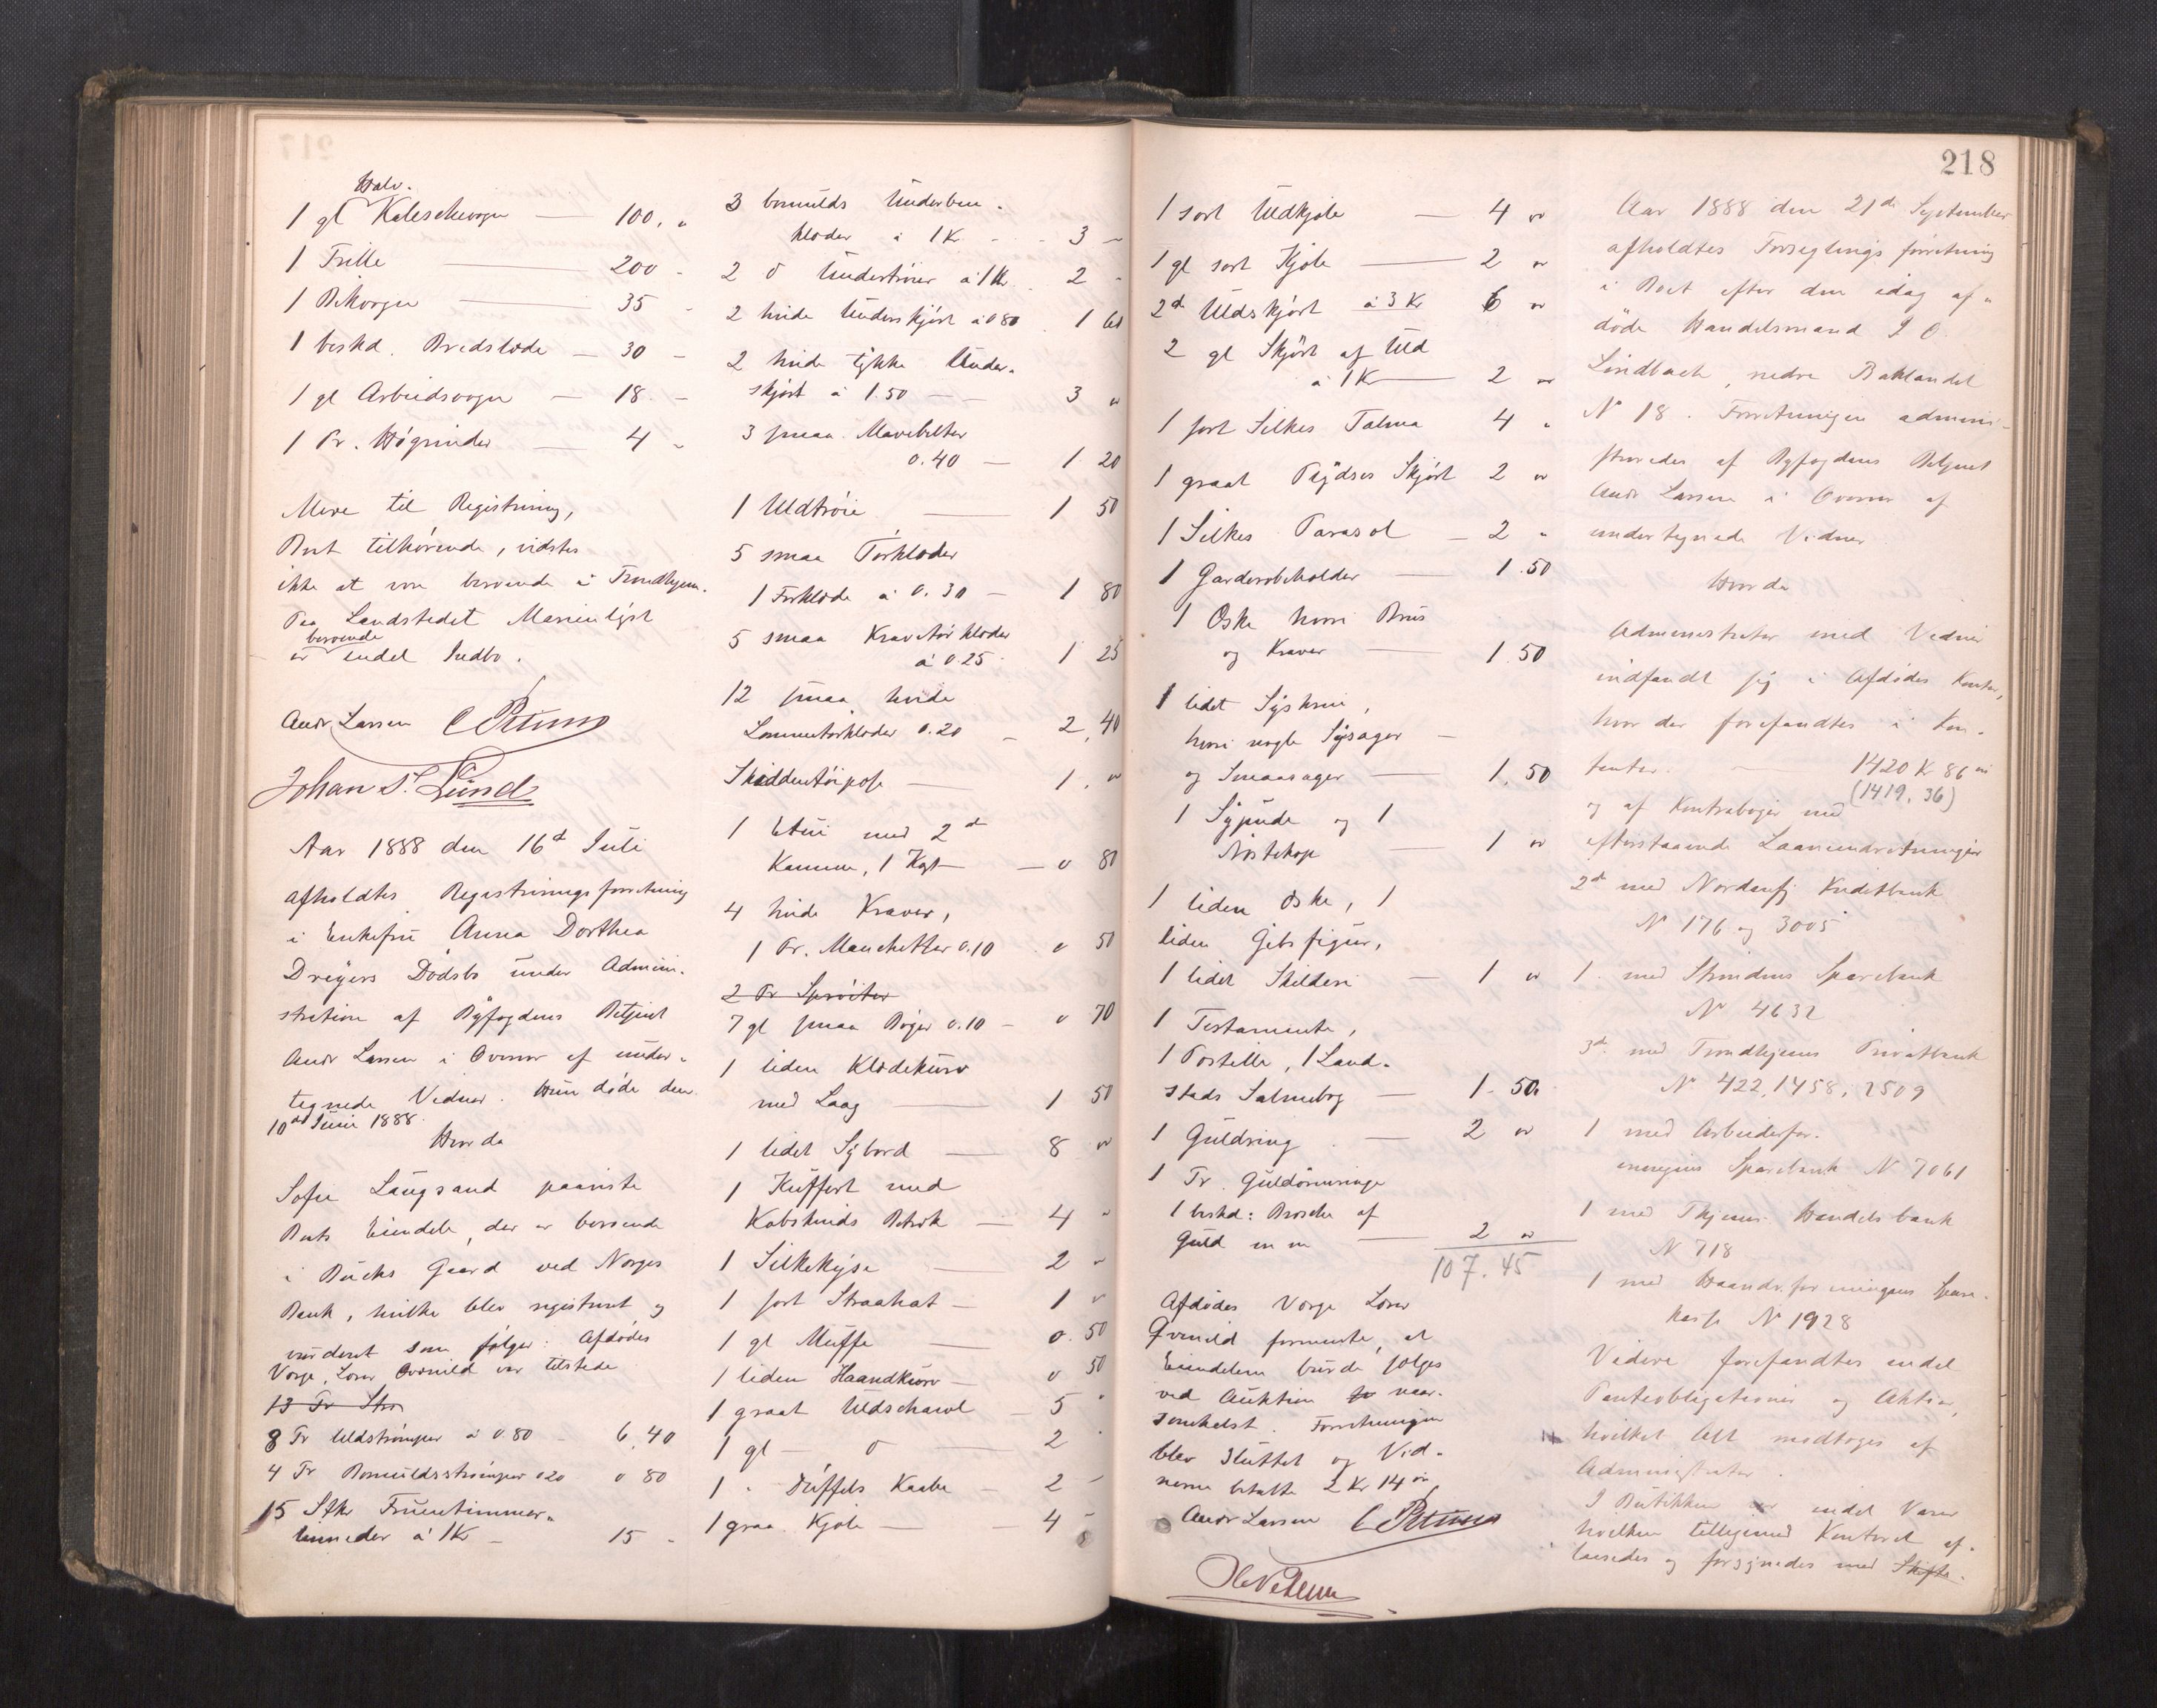 1 gl Halv. Kaleschevogn — 100. "
1 Trille — 200 -
1 Bikvogn — 35 -
1 beskd. Bredslæde — 30 -
1 gl Arbeidsvogn — 18. -
1 Pr. Høgrinder — 4 -
Mere til Registrering,
Boet tilhørende, vidstes
ikke at være beroende i Trondhjem.
Paa Landstedet Marienlyst
er beroende endel Indbo.
Andr Larsen C Petersen
Johan P. Lund
Aar 1888 den 16d Juli
afholdtes Registreringsforretning
i Enkefru Anna Dorthea
Dreyers Dødsbo under Admini-
stration af Byfogdens Betjent
Andr Larsen i Overvær af under-
tegnede Vidner. Hun døde den
10de Juni 1888.
Hvorda
Sofie Langsand paaviste
Boets Eiendele, der er beroende
i Bucks Gaard ved Norges
Bank, hvilke blev registreret og
vurderet som følger: Afdødes
Verge, Lorer Qvenild var tilstede
13 Pr Strø
8 Pr Uldstrømper à 0.80 - 6.40
4 Pr Bomuldsstrømper 0.20 0 80
15 Stkr Fruentimmer-
linneder à 1 Kr - 15 -
3 bomulds Underben-
klæder à 1 Kr - - 3 -
2 do Undertrøier à 1 Kr. 2 -
2 hvide Underskjørt à 0.80 . 1 60
2 hvide tykke Under-
skjørt à 1.50 - - 3 "
3 smaa Mavebelter
0.40 — 1 20
1 Uldtrøie — 1 50
5 smaa Tørklæder
1 Forklæde à 0.30 — 1 80
5 smaa Kravetørklæder
à 0.25 . 1 25
12 smaa hvide
Lommetørklæder 0.20 - 2.40
Skiddentøipose — 1. "
1 Etui med 2d
Kamme, 1 Kost — 0 80
4 hvide Kraver,
1 Pr. Manchetter 0.10 . 0 50
2 Pr Sprøiter
7 gl smaa Bøger 0.10 - 0 70
1 liden Klædekurv
med Laag — 1 50
1 lidet Sybord — 8 "
1 Kuffert med
Kobskinds Betræk — 4 "
1 Silkekyse — 2 -
1 sort Straahat — 1 "
1 gl Muffe — 0.50
1 liden Haandkurv — 0 50
1 graat Uldschawl — 5 "
1 gl — do — 2 "
1 " Düffels Kaabe — 2 -
1 graa Kjole — 4 -
218
1 sort Uldkjole — 4 "
1 gl sort Kjole — 2 "
2d Uldskjørt à 3 Kr 6 "
2 gl Skjørt af Uld
à 1 Kr — 2 "
1 sort Silkes Talma 4 "
1 graat Paydses Skjørt 2 "
1 Silkes Parasol — 2 "
1 Garderobeholder — 1.50
1 Øske hvori Brus
og Kraver — 1.50
1 lidet Syskrin,
hvori nogle Sysager —
og Smaasager — 1.50
1 Sypude og 1
Nøstekop — 1 "
1 liden Øske, 1
liden Gibsfigur,
1 lidet Skilderi — 1 "
1 Testamente,
1 Postille, 1 Land-
stads Salmebog — 1.50
1 Guldring . — 2 "
1 Pr. Guldørenringe
1 beskd: Brosche af
Guld m m — 2 "
107.45
Afdødes Verge Lorer
Qvenild formente, at
Eiendelene burde sælges
ved Auktion naar-
somhelst. Forretningen
blev sluttet og Vid-
nerne betalte 2 Kr 14 ør
Andr Larsen C Petersen
Aar 1888 den 21de September
afholdtes Forseglingsforretning
i Boet efter den idag af-
døde Handelsmand I O.
Lindbach, nedre Baklandet
No 18. Forretningen admini-
streredes af Byfogdens Betjent
Andr Larsen i Overvær af
undertegnede Vidner
Hvorda
Administrator med Vidner
indfandt sig i Afdødes Kontor,
hvor der forefandtes i Kon-
tanter. — 1420 Kr 86 ør
(1419.36)
og af Kontrabøger med
efterstaaende Laaneindretninger
2d med Nordenfj Kreditbank
No 176 og 3005
1. med Strindens Sparebank
No 4632
3d. med Trondhjems Privatbank
No 422, 1458, 2509
1 med Arbeiderfor-
eningens Sparebank No 7061
1 med Thjems Handelsbank
No 718
1 med Haandv.foreningens Spare-
kasse No 1928
Videre forefandtes endel
Panteobligationer og Aktier,
hvilket Alt modtoges af
Administrator.
I Butikken er endel Varer
hvilken tilligemed Kontoret af-
laasedes og forsynedes med Skifte-